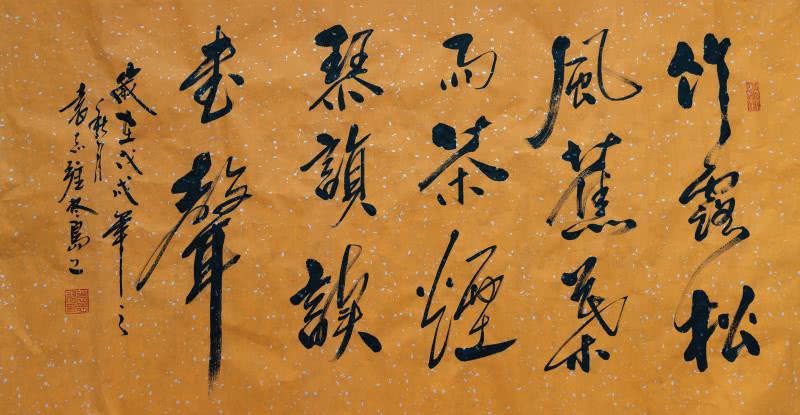 竹露松
風蕉葉
雨茶煙
琴韻讀
書聲
歲在戊戌年之
秋月